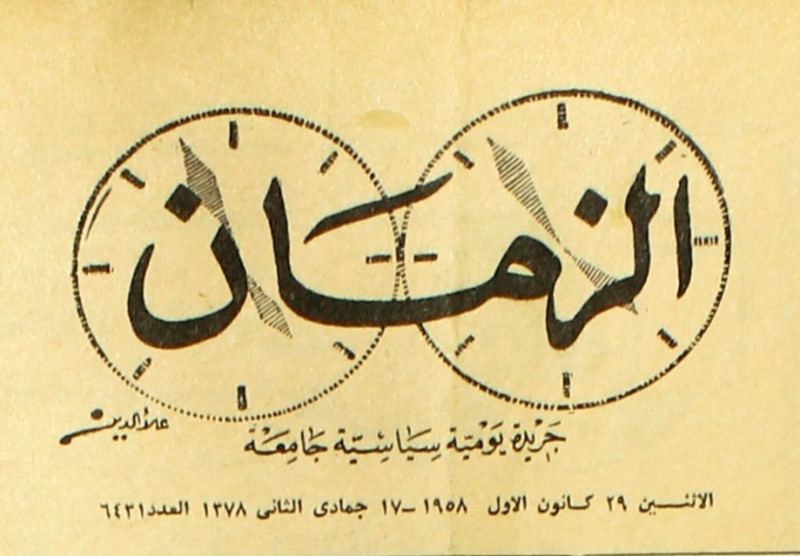 الزمان
علاء الدين
جريدة يومية سياسية جامعة
الاثنين ٢٩ كانون الاول ١٩٥٨ – ١٧ جمادى الثانى ١٣٧٨ العدد ٦٤٣١